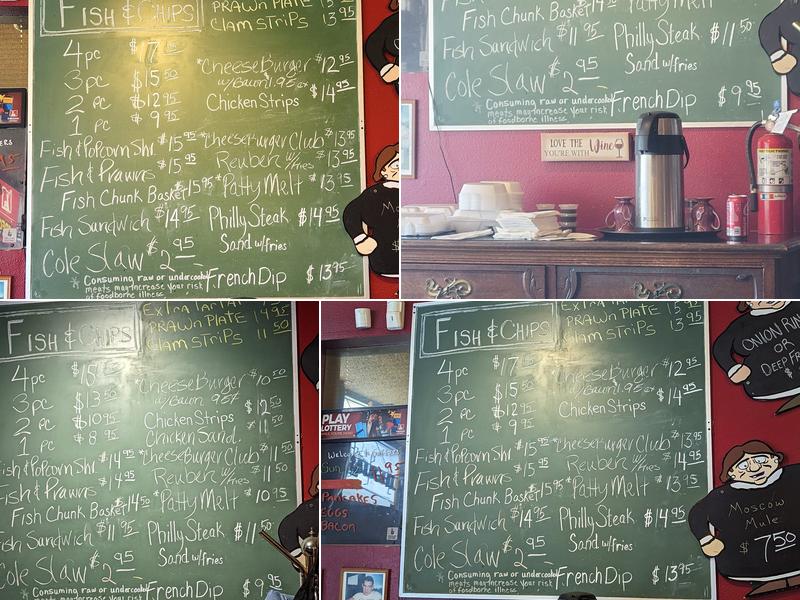 FISH & CHIPS
PRAWN PLATE 15 95
CLAM STRIPS 13 95
4 pc $17
3 pc $15 50
2 pc $12 95
1 pc $9 95
*CheeseBurger $12 95
w/Bacon 1.95 Ext $14 95
Chicken Strips
Fish & Popcorn Shr $15 95
*CheeseBurger Club $13 95
Fish & Prawns $15 95
Reuben w/fries $13 95
Fish Chunk Basket $15 95
*Patty Melt $13 95
Fish Sandwich $14 95
Philly Steak $14 95
Sand w/fries
Cole Slaw $2 95
French Dip $13 95
*Consuming raw or undercooked
meats may increase your risk
of foodborne illness.
Fish Chunk Basket $14 50
Patty Melt
Fish Sandwich $11 95
Philly Steak $11 50
Sand w/fries
Cole Slaw $2 95
French Dip $9 95
*Consuming raw or undercooked
meats may increase your risk
of foodborne illness.
LOVE THE Wine
YOU'RE WITH
FISH & CHIPS
EXTRA TARTAR
PRAWN PLATE 14 95
CLAM STRIPS 11 50
4 pc $15
3 pc $13 50
2 pc $10 95
1 pc $8 95
*CheeseBurger $10 50
w/Bacon .95¢
Chicken Strips $12 50
Chicken Sand $11 50
Fish & Popcorn Shr $14 95
*CheeseBurger Club $11 50
Fish & Prawns $14 95
Reuben w/fries $11 50
Fish Chunk Basket $14 50
*Patty Melt $10 95
Fish Sandwich $11 95
Philly Steak $11 50
Sand w/fries
Cole Slaw $2 95
French Dip $9 95
*Consuming raw or undercooked
meats may increase your risk
of foodborne illness.
PLAY
LOTTERY
PANCAKES
EGGS
BACON
FISH & CHIPS
PRAWN PLATE 15 95
CLAM STRIPS 13 95
4 pc $17
3 pc $15 50
2 pc $12 95
1 pc $9 95
*CheeseBurger $12 95
w/Bacon 1.95 Ext $14 95
Chicken Strips
Fish & Popcorn Shr $15 95
*CheeseBurger Club $13 95
Fish & Prawns $15 95
Reuben w/fries $14 95
Fish Chunk Basket $15 95
*Patty Melt $13 95
Fish Sandwich $14 95
Philly Steak $14 95
Sand w/fries
Cole Slaw $2 95
French Dip $13 95
*Consuming raw or undercooked
meats may increase your risk
of foodborne illness.
ONION RINGS
OR
DEEP FR
Moscow
Mule
$7 50